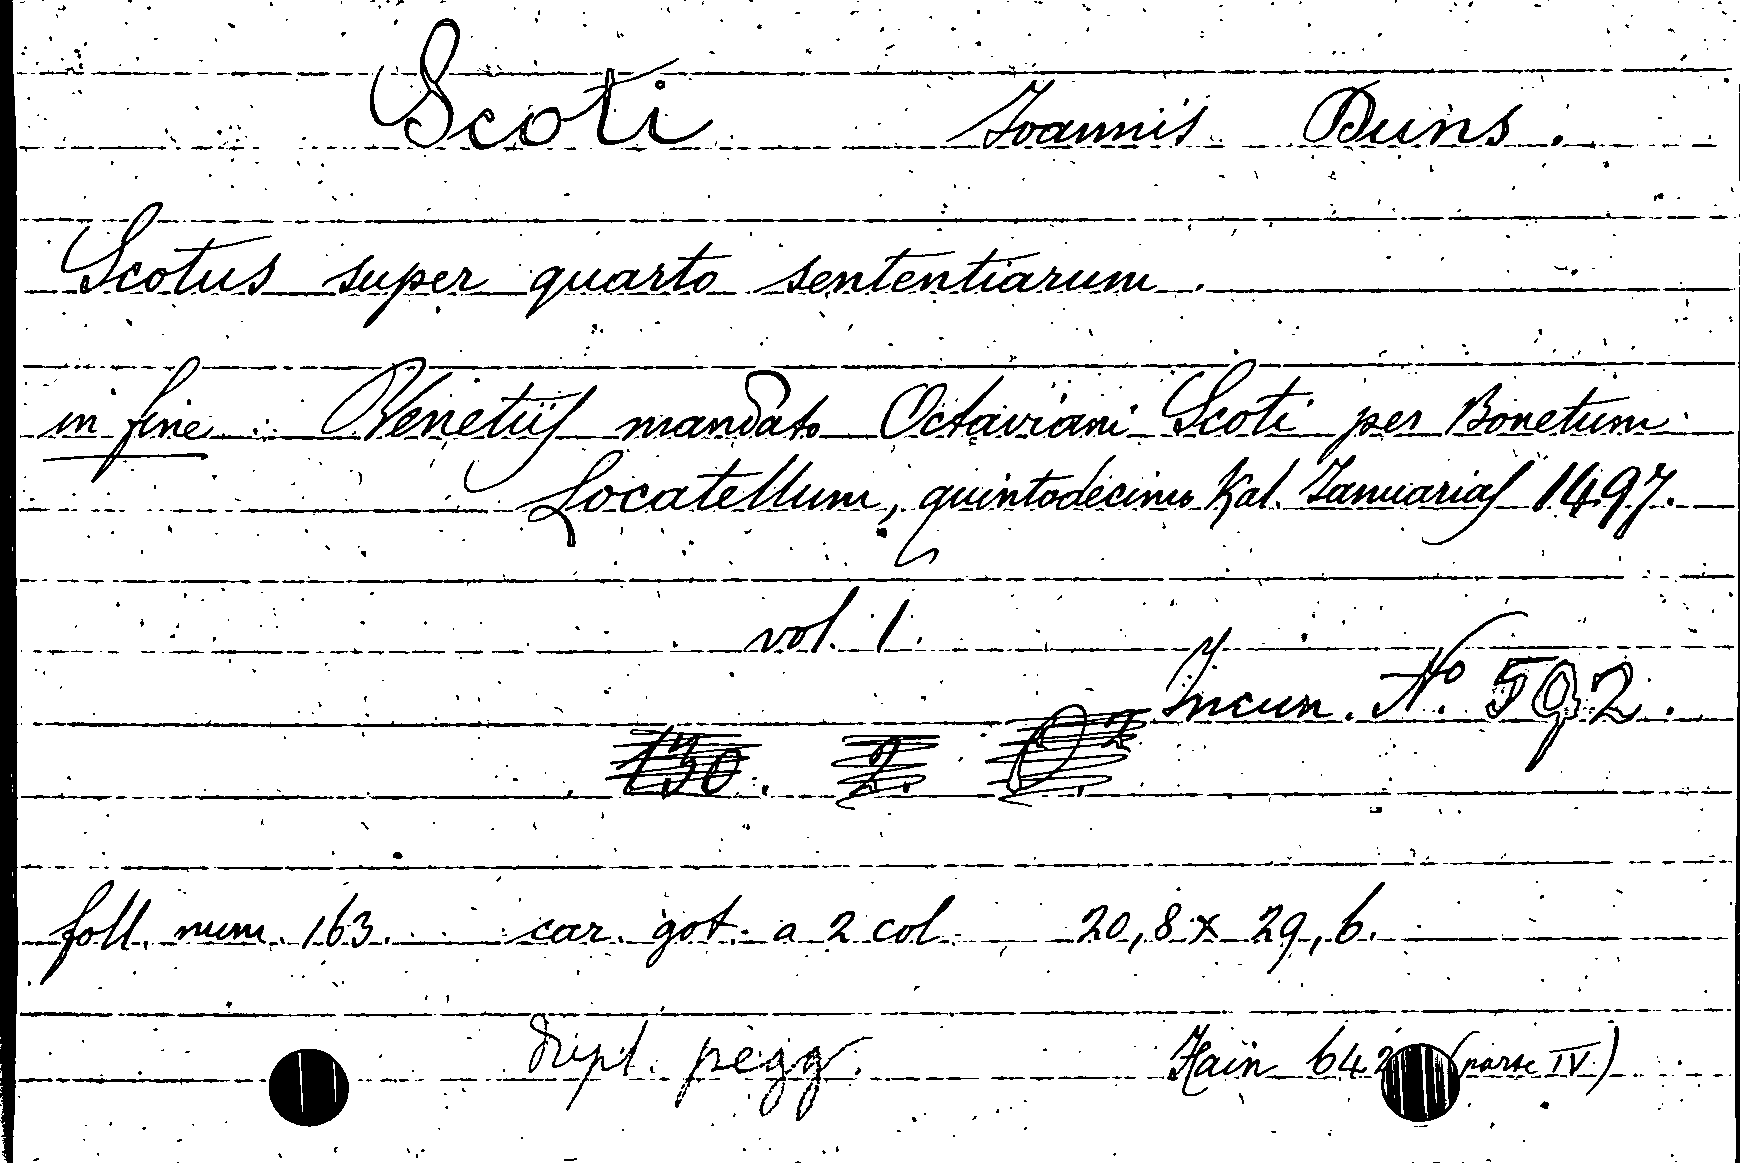 Scoti Ioannis Duns.
Scotus super quarto sententiarum.
in fine: Venetijs mandato Octaviani Scoti per Bonetum
Locatellum, quintodecimo Kal. Ianuarias 1497.
vol. 1.
Incun. No. 592.
130. 2. O.2
foll. num. 163. car. got. a 2 col. 20,8 x 29,6.
dupl. pegg. Hain 642 (parte IV)